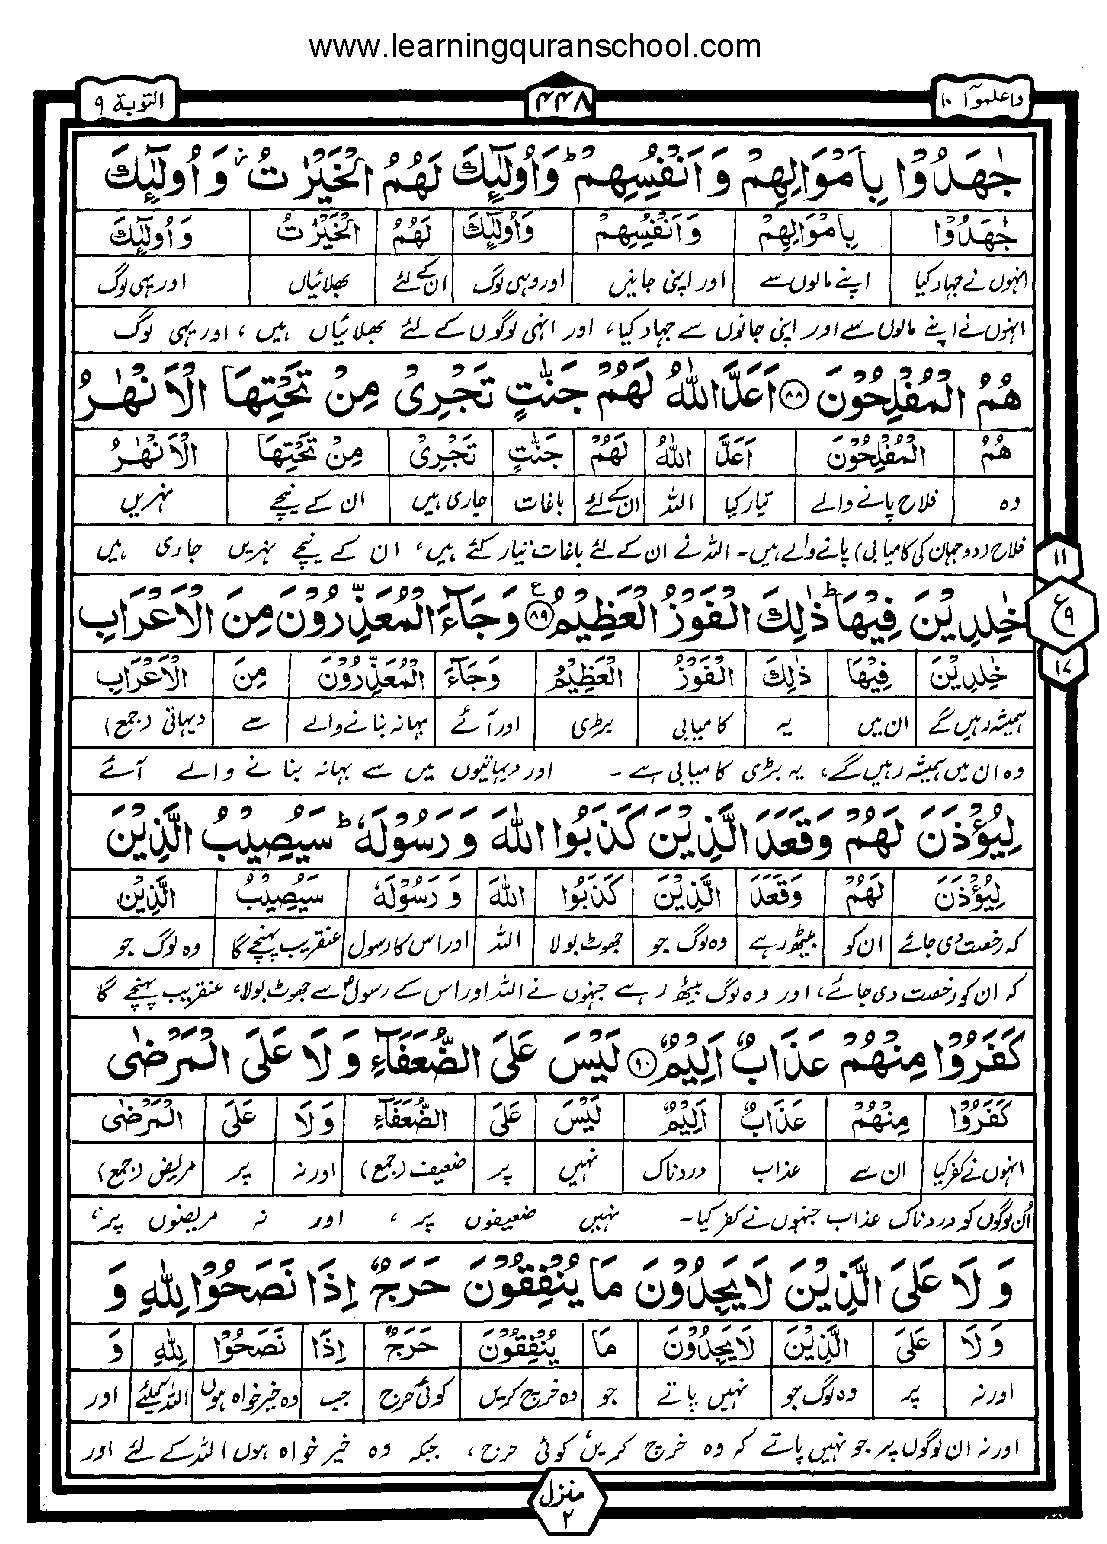 www.learningquranschool.com
واعلموٓا ١٠
۴۴۸
التوبة ٩
جٰهَدُوْا بِاَمْوَالِهِمْ وَاَنْفُسِهِمْ ؕ وَاُولٰٓئِكَ لَهُمُ الْخَيْرٰتُ ؗ وَاُولٰٓئِكَ
جٰهَدُوْا بِاَمْوَالِهِمْ وَاَنْفُسِهِمْ وَاُولٰٓئِكَ لَهُمُ الْخَيْرٰتُ وَاُولٰٓئِكَ
انہوں نے جہاد کیا اپنے مالوں سے اور اپنی جانیں اور وہی لوگ ان کے لئے بھلائیاں اور یہی لوگ
انہوں نے اپنے مالوں سے اور اپنی جانوں سے جہاد کیا، اور انہی لوگوں کے لئے بھلائیاں ہیں ، اور یہی لوگ
هُمُ الْمُفْلِحُوْنَ ﴿۸۸﴾ اَعَدَّ اللّٰهُ لَهُمْ جَنّٰتٍ تَجْرِیْ مِنْ تَحْتِهَا الْاَنْهٰرُ
هُمُ الْمُفْلِحُوْنَ اَعَدَّ اللّٰهُ لَهُمْ جَنّٰتٍ تَجْرِیْ مِنْ تَحْتِهَا الْاَنْهٰرُ
وہ فلاح پانے والے تیار کیا اللہ ان کے لئے باغات جاری ہیں ان کے نیچے نہریں
فلاح (دو جہان کی کامیابی) پانے والے ہیں۔ اللہ نے ان کے لئے باغات تیار کئے ہیں، ان کے نیچے نہریں جاری ہیں
۱۱
خٰلِدِيْنَ فِيْهَا ؕ ذٰلِكَ الْفَوْزُ الْعَظِيْمُ ﴿۸۹﴾ ع وَجَآءَ الْمُعَذِّرُوْنَ مِنَ الْاَعْرَابِ
ع ۹
۱۷
خٰلِدِيْنَ فِيْهَا ذٰلِكَ الْفَوْزُ الْعَظِيْمُ وَجَآءَ الْمُعَذِّرُوْنَ مِنَ الْاَعْرَابِ
ہمیشہ رہیں گے ان میں یہ کامیابی بڑی اور آئے بہانہ بنانے والے سے دیہاتی (جمع)
وہ ان میں ہمیشہ رہیں گے، یہ بڑی کامیابی ہے۔ اور دیہاتیوں میں سے بہانہ بنانے والے آئے
لِيُؤْذَنَ لَهُمْ وَقَعَدَ الَّذِيْنَ كَذَبُوا اللّٰهَ وَرَسُوْلَهٗ ؕ سَيُصِيْبُ الَّذِيْنَ
لِيُؤْذَنَ لَهُمْ وَقَعَدَ الَّذِيْنَ كَذَبُوا اللّٰهَ وَرَسُوْلَهٗ سَيُصِيْبُ الَّذِيْنَ
کہ رخصت دی جائے ان کو بیٹھ رہے وہ لوگ جو جھوٹ بولا اللہ اور اس کا رسول عنقریب پہنچے گا وہ لوگ جو
کہ ان کو رخصت دی جائے، اور وہ لوگ بیٹھ رہے جنہوں نے اللہ اور اس کے رسولؐ سے جھوٹ بولا، عنقریب پہنچے گا
كَفَرُوْا مِنْهُمْ عَذَابٌ اَلِيْمٌ ﴿۹۰﴾ لَيْسَ عَلَى الضُّعَفَآءِ وَلَا عَلَى الْمَرْضٰى
كَفَرُوْا مِنْهُمْ عَذَابٌ اَلِيْمٌ لَيْسَ عَلَى الضُّعَفَآءِ وَلَا عَلَى الْمَرْضٰى
انہوں نے کفر کیا ان سے عذاب دردناک نہیں پر ضعیف (جمع) اور نہ پر مریض (جمع)
اُن لوگوں کو دردناک عذاب جنہوں نے کفر کیا۔ نہیں ضعیفوں پر ، اور نہ مریضوں پر،
وَلَا عَلَى الَّذِيْنَ لَا يَجِدُوْنَ مَا يُنْفِقُوْنَ حَرَجٌ اِذَا نَصَحُوْا لِلّٰهِ وَ
وَلَا عَلَى الَّذِيْنَ لَا يَجِدُوْنَ مَا يُنْفِقُوْنَ حَرَجٌ اِذَا نَصَحُوْا لِلّٰهِ وَ
اور نہ پر وہ لوگ جو نہیں پاتے جو وہ خرچ کریں کوئی حرج جب وہ خیر خواہ ہوں اللہ کیلئے اور
اور نہ ان لوگوں پر جو نہیں پاتے کہ وہ خرچ کریں کوئی حرج ، جبکہ وہ خیر خواہ ہوں اللہ کے لئے اور
منزل
۲